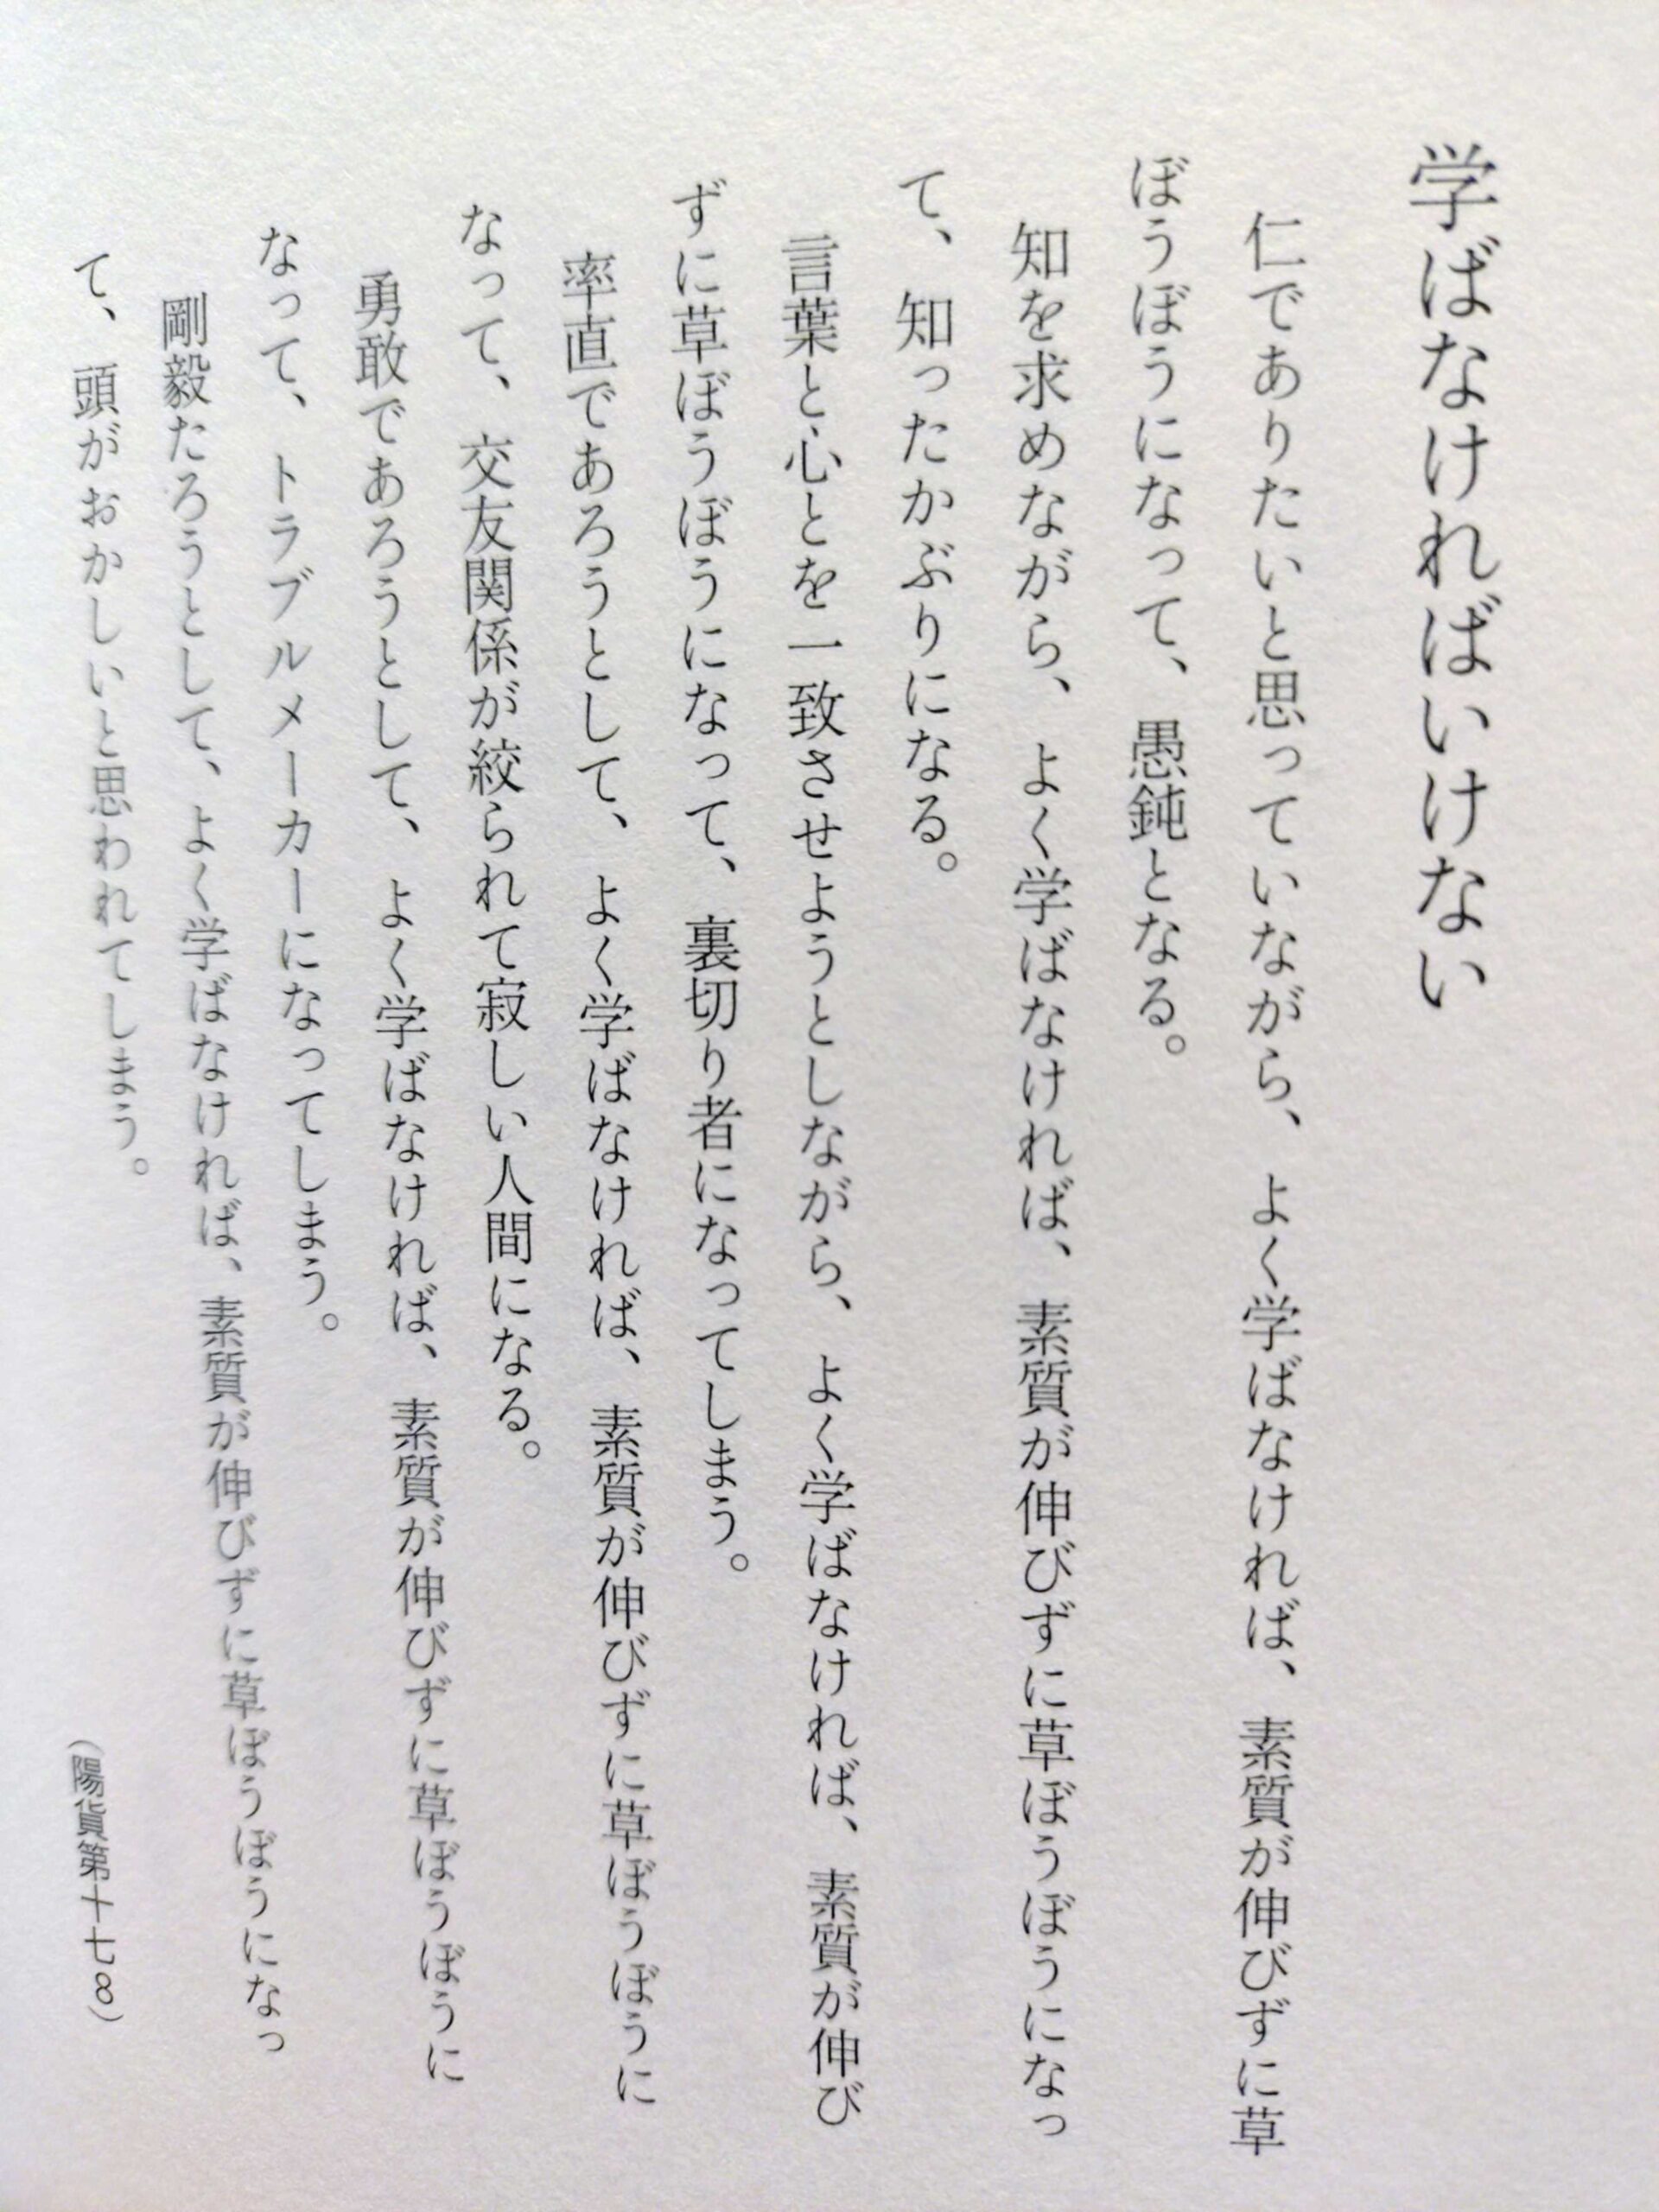 学ばなければいけない
仁でありたいと思っていながら、よく学ばなければ、素質が伸びずに草
ぼうぼうになって、愚鈍となる。
知を求めながら、よく学ばなければ、素質が伸びずに草ぼうぼうになっ
て、知ったかぶりになる。
言葉と心とを一致させようとしながら、よく学ばなければ、素質が伸び
ずに草ぼうぼうになって、裏切り者になってしまう。
率直であろうとして、よく学ばなければ、素質が伸びずに草ぼうぼうに
なって、交友関係が絞られて寂しい人間になる。
勇敢であろうとして、よく学ばなければ、素質が伸びずに草ぼうぼうに
なって、トラブルメーカーになってしまう。
剛毅たろうとして、よく学ばなければ、素質が伸びずに草ぼうぼうになっ
て、頭がおかしいと思われてしまう。
（陽貨第十七8）